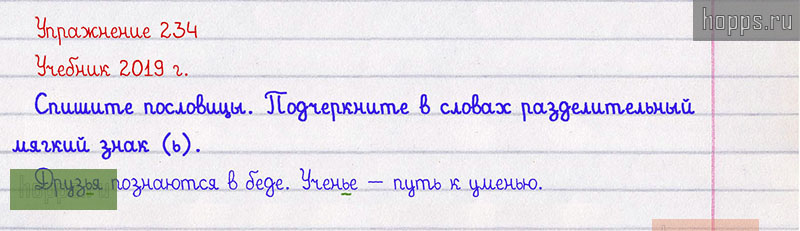 hopps.ru
Упражнение 234
Учебник 2019 г.
Спишите пословицы. Подчеркните в словах разделительный
мягкий знак (ь).
Друзья познаются в беде. Ученье – путь к уменью.